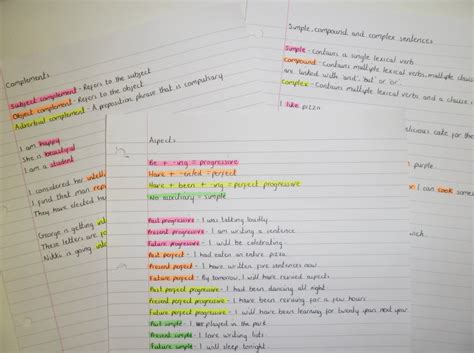 Complements
Subject complement - Refers to the subject
Object complement - Refers to the object
Adverbial complement - A preposition phrase that is compulsory
I am happy
She is beautiful
I am a student
I considered her
I find that man
They have elected her
George is getting
These letters are
Nikki is going
Simple, compound and complex sentences
Simple - Contains a single lexical verb
Compound - Contains multiple lexical verbs, multiple clauses
are linked with 'and', 'but' or 'or'.
Complex - Contains multiple lexical verbs and a clause
I like pizza
delicious cake for the
purple.
I can cook some
Aspects
Be + -ing = progressive
Have + -en/ed = perfect
Have + been + -ing = perfect progressive
No auxiliary = simple
Past progressive - I was talking loudly
Present progressive - I am writing a sentence
Future progressive - I will be celebrating
Past perfect - I had eaten an entire pizza
Present perfect - I have written five sentences now
Future perfect - By tomorrow, I will have revised aspects
Past perfect progressive - I had been dancing all night
Present perfect progressive - I have been revising for a few hours
Future perfect progressive - I will have been learning for twenty years next year
Past simple - I played in the park
Present simple - I love writing lists
Future simple - I will sleep tonight